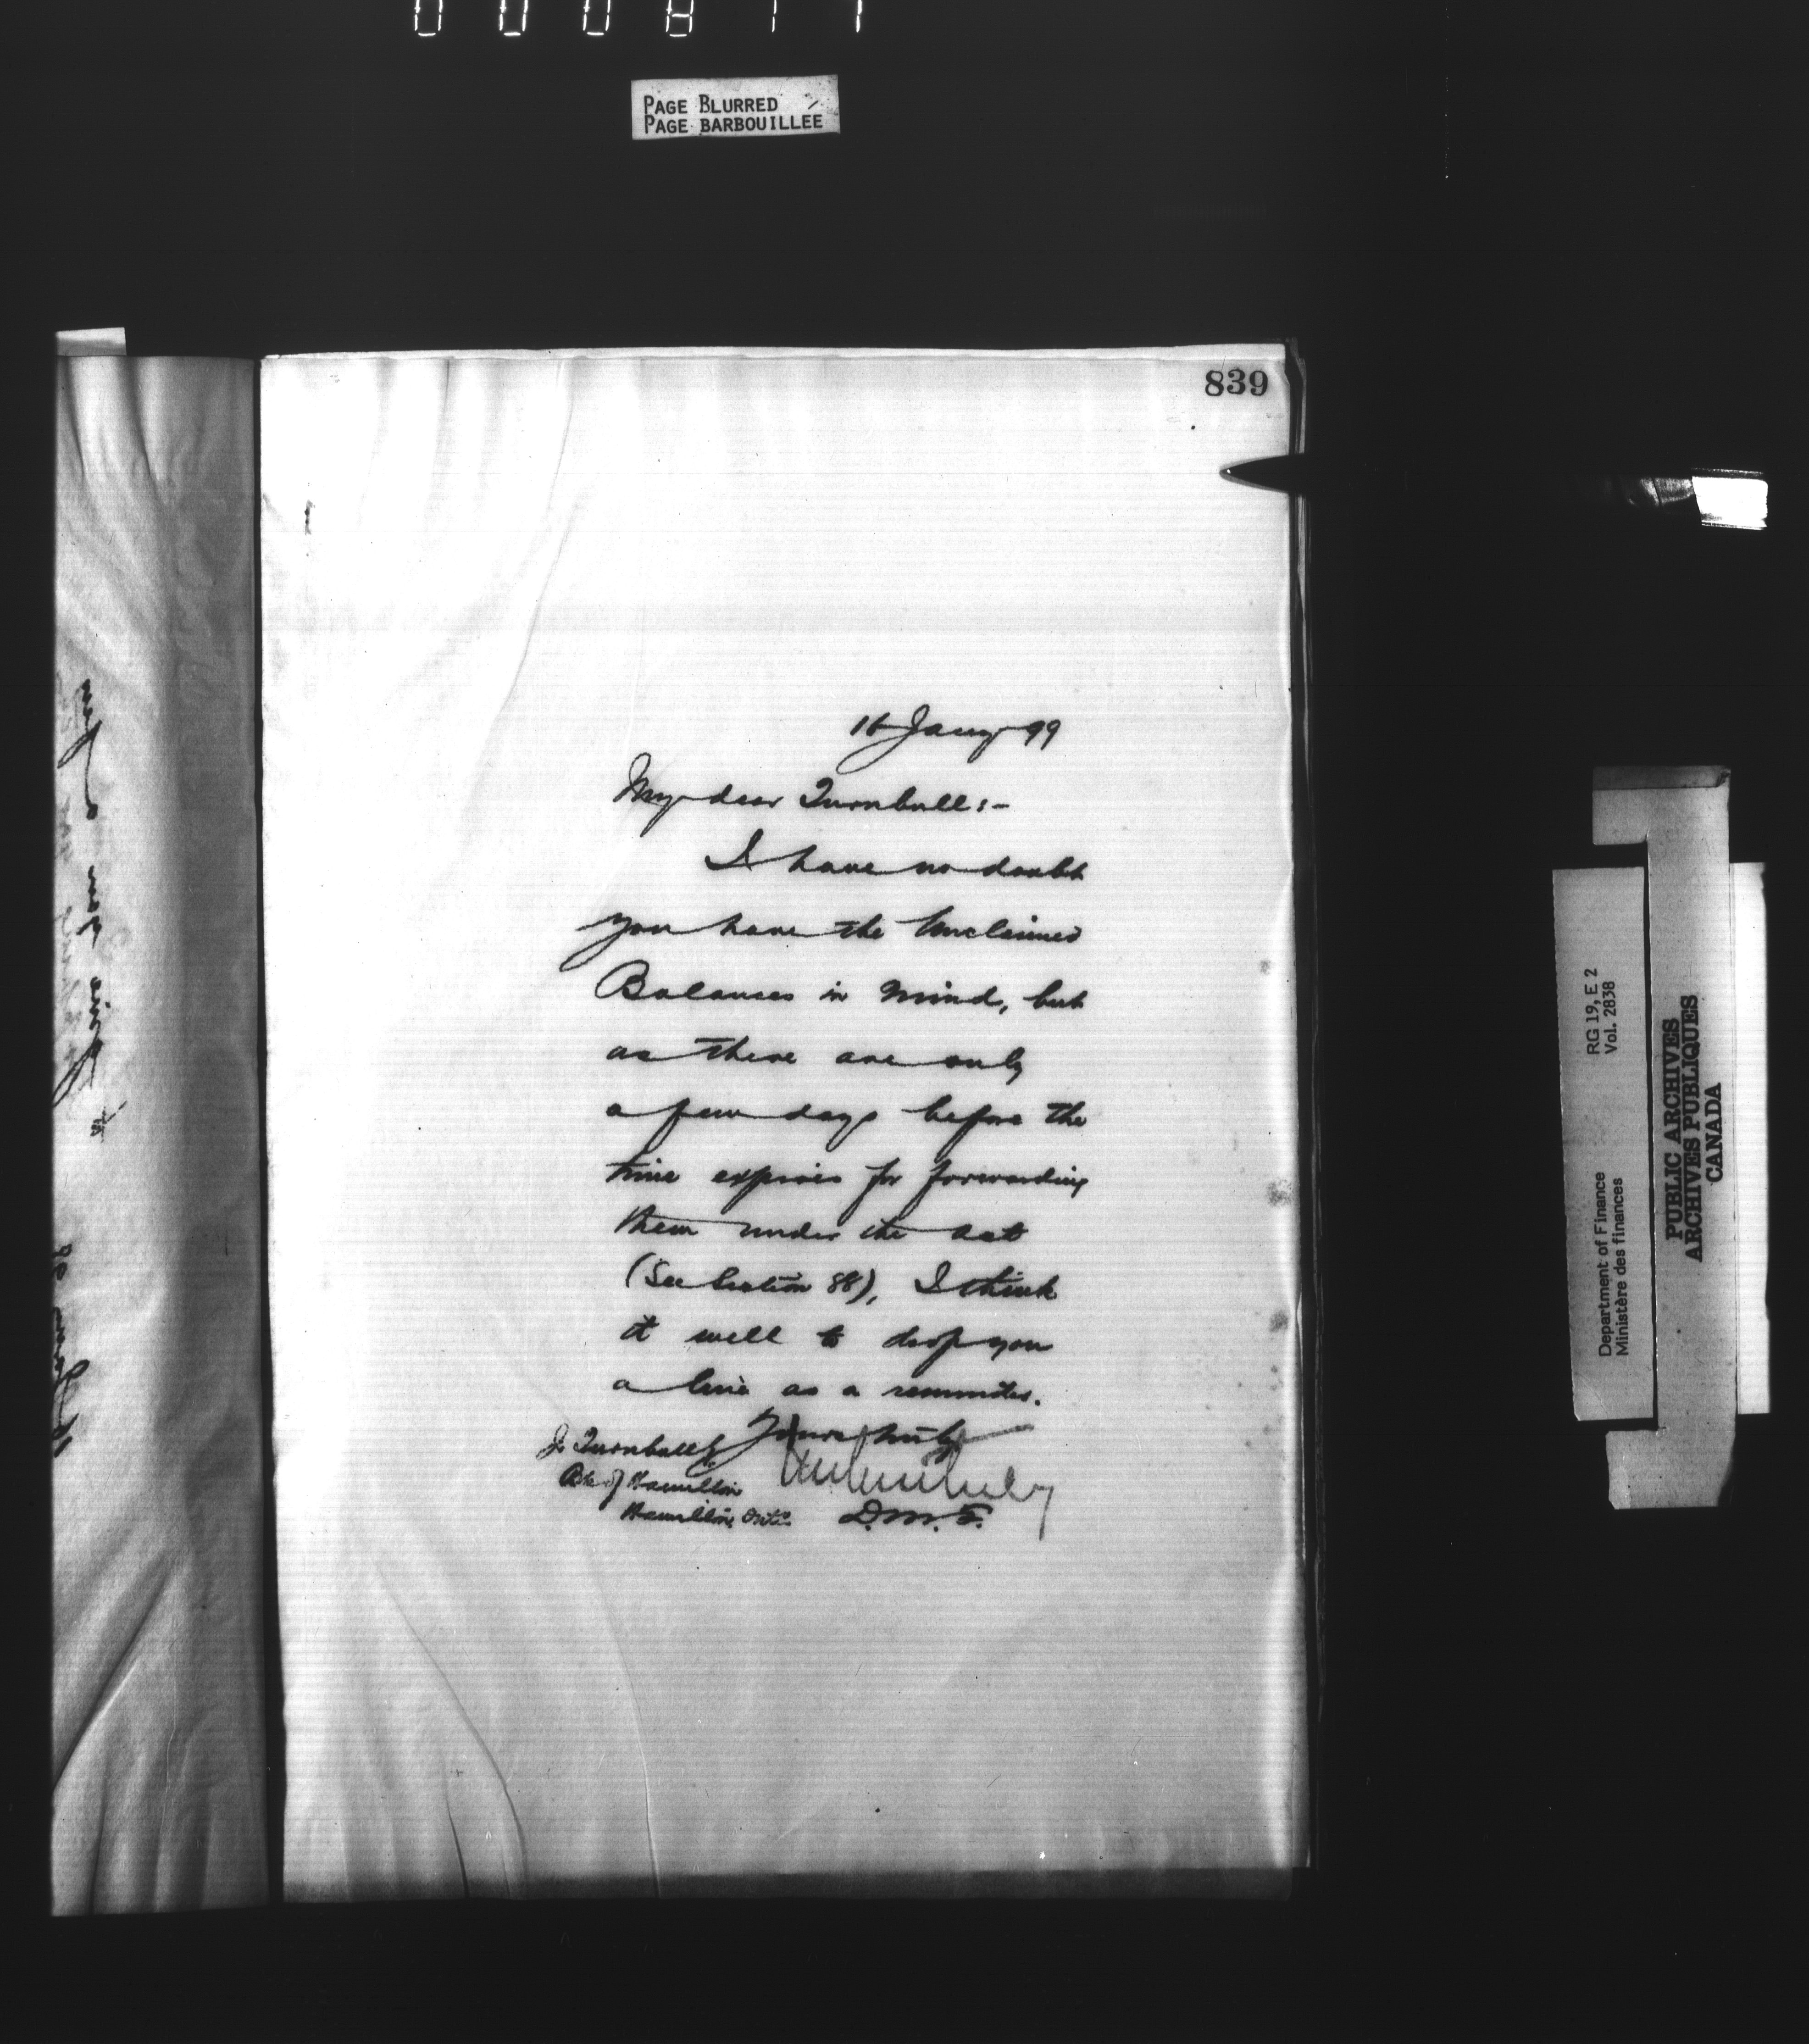 PAGE BLURRED
PAGE BARBOUILLEE
839
16 Jany 99
My dear Turnbull:-
I have no doubt
you have the Unclaimed
Balances in mind, but
as there are only
a few days before the
time expires for forwarding
them under the act
(See Section 88), I think
it well to drop you
a line as a reminder.
Yours truly
J. Turnbull
Bk of Hamilton
Hamilton, Onto.
D.M.F.
RG 19, E 2
Vol. 2838
Department of Finance
Ministère des finances
PUBLIC ARCHIVES
ARCHIVES PUBLIQUES
CANADA